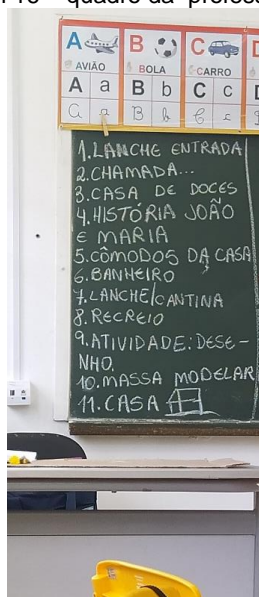 quadro da profess
A B C
AVIÃO BOLA CARRO
A a B b C c
a B b C c
1. LANCHE ENTRADA
2. CHAMADA...
3. CASA DE DOCES
4. HISTÓRIA JOÃO
E MARIA
5. CÔMODOS DA CASA
6. BANHEIRO
7. LANCHE/CANTINA
8. RECREIO
9. ATIVIDADE: DESE-
NHO.
10. MASSA MODELAR
11. CASA